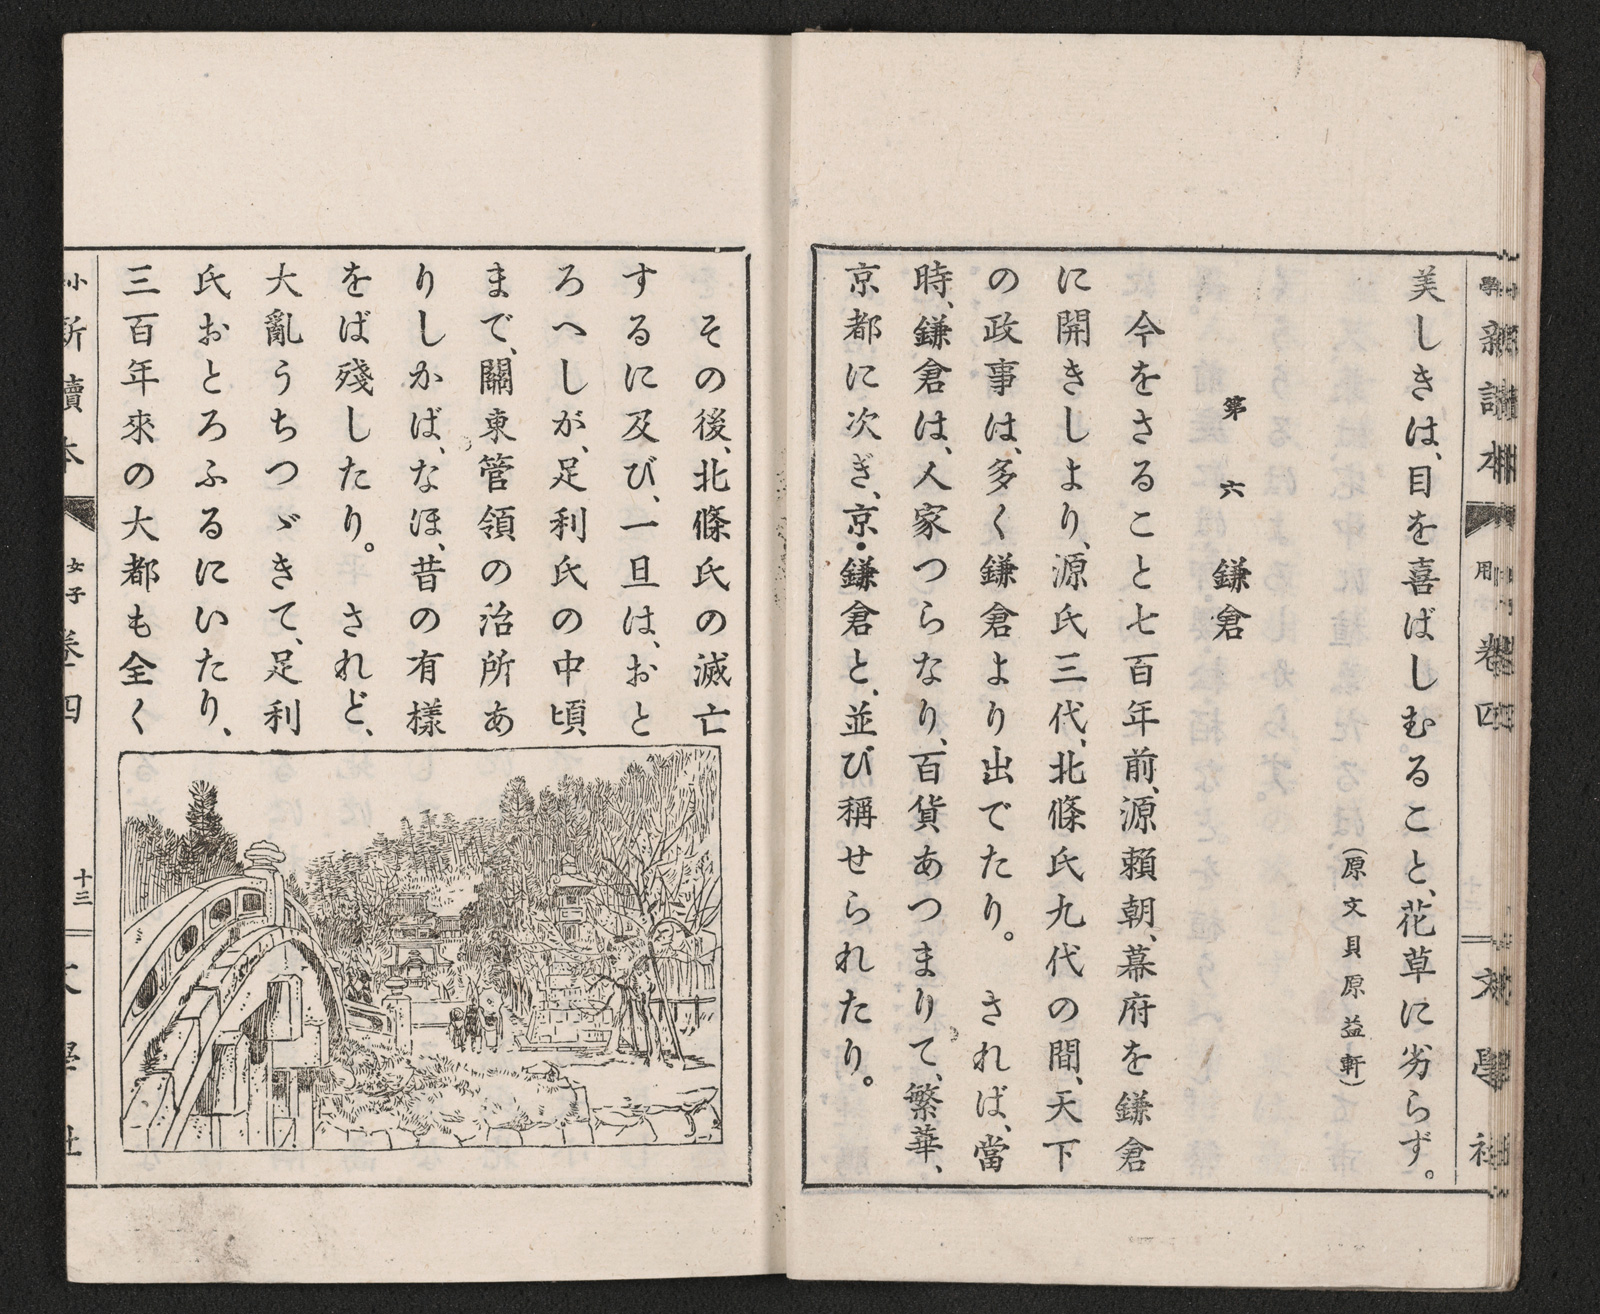 美しきは、目を喜ばしむること、花草に劣らず。
(原文貝原益軒)
第六 鎌倉
今をさること七百年前、源頼朝、幕府を鎌倉
に開きしより、源氏三代、北條氏九代の間、天下
の政事は、多く鎌倉より出でたり。されば、當
時、鎌倉は、人家つらなり、百貨あつまりて、繁華、
京都に次ぎ、京・鎌倉と、並び稱せられたり。
その後、北條氏の滅亡
するに及び、一旦は、おと
ろへしが、足利氏の中頃
まで、關東管領の治所あ
りしかば、なほ、昔の有樣
をば殘したり。されど、
大亂うちつゞきて、足利
氏おとろふるにいたり、
三百年來の大都も全く
小新讀本 女子 卷四 十三